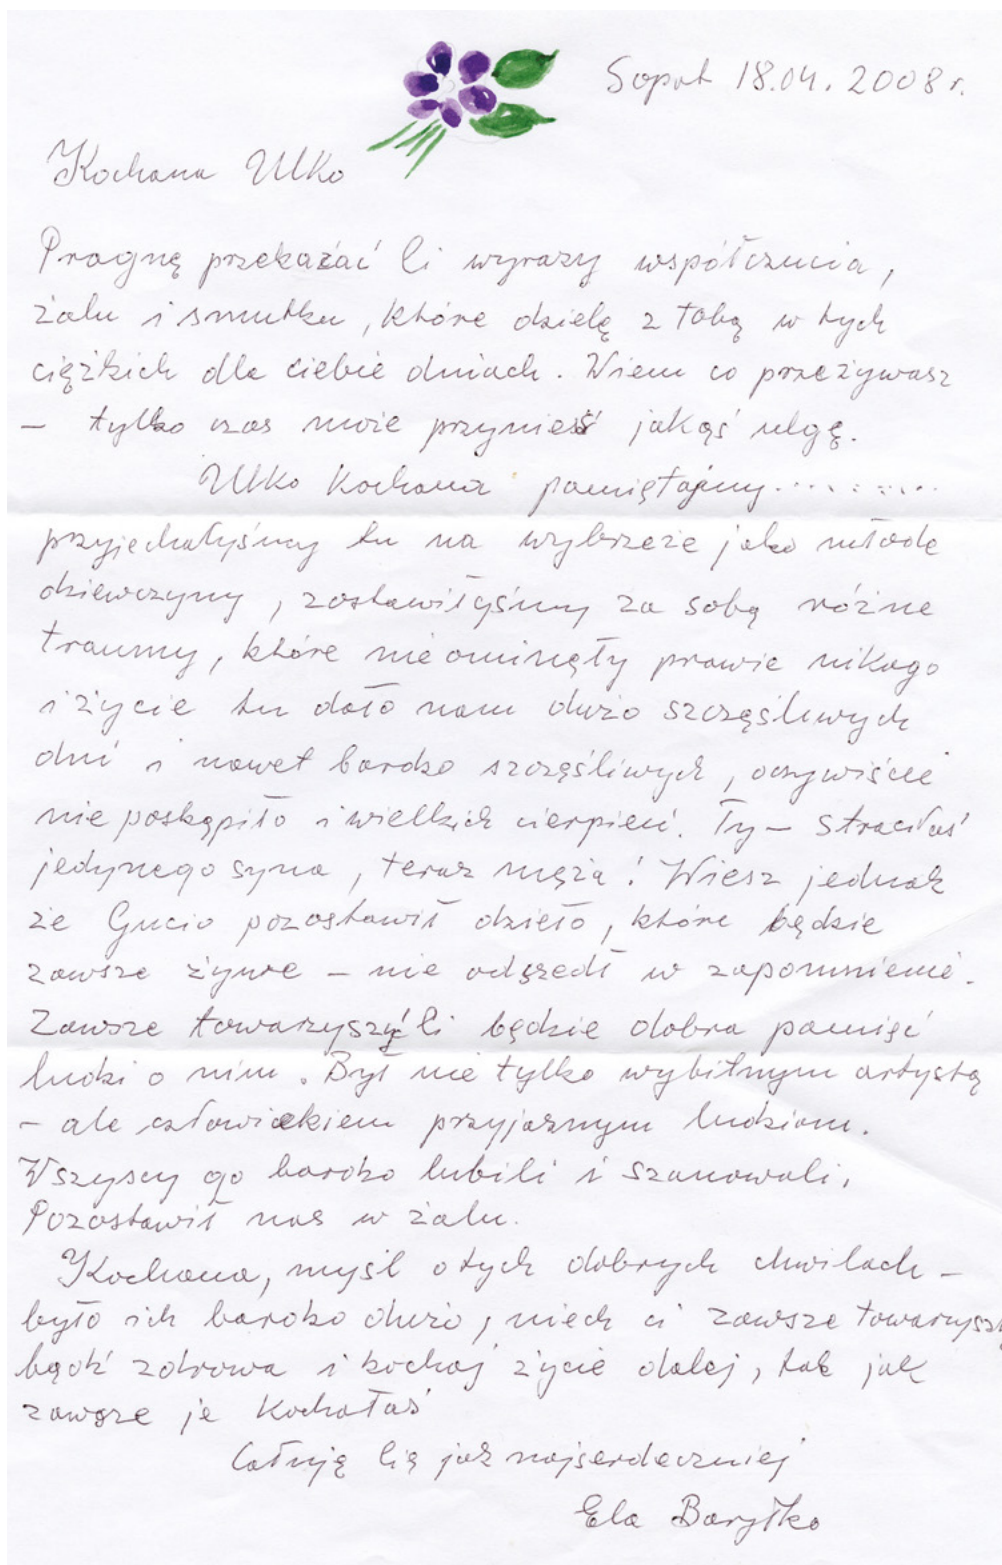 Sopot 18.04.2008 r.
Kochana Ulko
Pragnę przekazać Ci wyrazy współczucia,
żalu i smutku, które dzielę z tobą w tych
ciężkich dla ciebie dniach. Wiem co przeżywasz
– tylko czas może przynieść jakąś ulgę.
Ulko kochana pamiętajmy..........
przyjechałyśmy tu na wybrzeże jako młode
dziewczyny, zostawiłyśmy za sobą różne
traumy, które nie ominęły prawie nikogo
i życie tu dało nam dużo szczęśliwych
dni i nawet bardzo szczęśliwych, oczywiście
nie poskąpiło i wielkich cierpień. Ty – straciłaś
jedynego syna, teraz męża! Wiesz jednak
że Gucio pozostawił dzieło, które będzie
zawsze żywe – nie odszedł w zapomnienie.
Zawsze towarzyszyć Ci będzie dobra pamięć
ludzi o nim. Był nie tylko wybitnym artystą
– ale człowiekiem przyjaznym ludziom.
Wszyscy go bardzo lubili i szanowali,
Pozostawił nas w żalu.
Kochana, myśl o tych dobrych chwilach –
było ich bardzo dużo, niech ci zawsze towarzyszą
bądź zdrowa i kochaj życie dalej, tak jak
zawsze je kochałaś
Całuję Cię jak najserdeczniej
Ela Baryłko